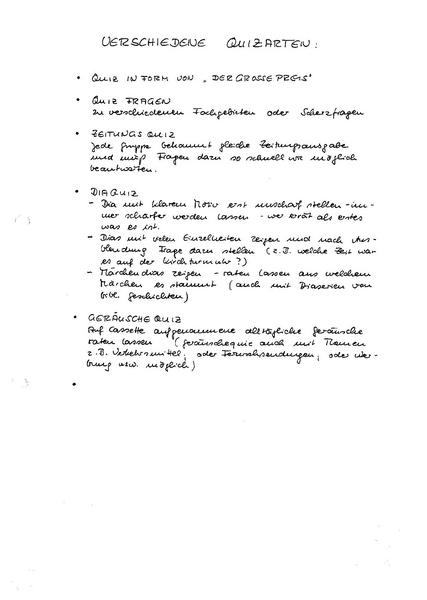 VERSCHIEDENE QUIZARTEN:
• QUIZ IN FORM VON „DER GROSSE PREIS"
• QUIZ FRAGEN
zu verschiedenen Fachgebieten oder Scherzfragen
• ZEITUNGSQUIZ
Jede Gruppe bekommt gleiche Zeitungsausgabe
und muß Fragen dazu so schnell wie möglich
beantworten.
• DIAQUIZ
– Dia mit klarem Motiv erst unscharf stellen - im-
mer schärfer werden lassen - wer errät als erstes
was es ist.
– Dias mit vielen Einzelheiten zeigen und nach Aus-
blendung Frage dazu stellen (z.B. welche Zeit war
es auf der Kirchturmuhr?)
– Märchendias zeigen - raten lassen aus welchem
Märchen es stammt (auch mit Diaserien von
bibl. Geschichten)
• GERÄUSCHE QUIZ
Auf Cassette aufgenommene alltägliche Geräusche
raten lassen (Geräuschequiz auch mit Themen
z.B. Verkehrsmittel, oder Fernsehsendungen, oder Wer-
bung usw. möglich)
•